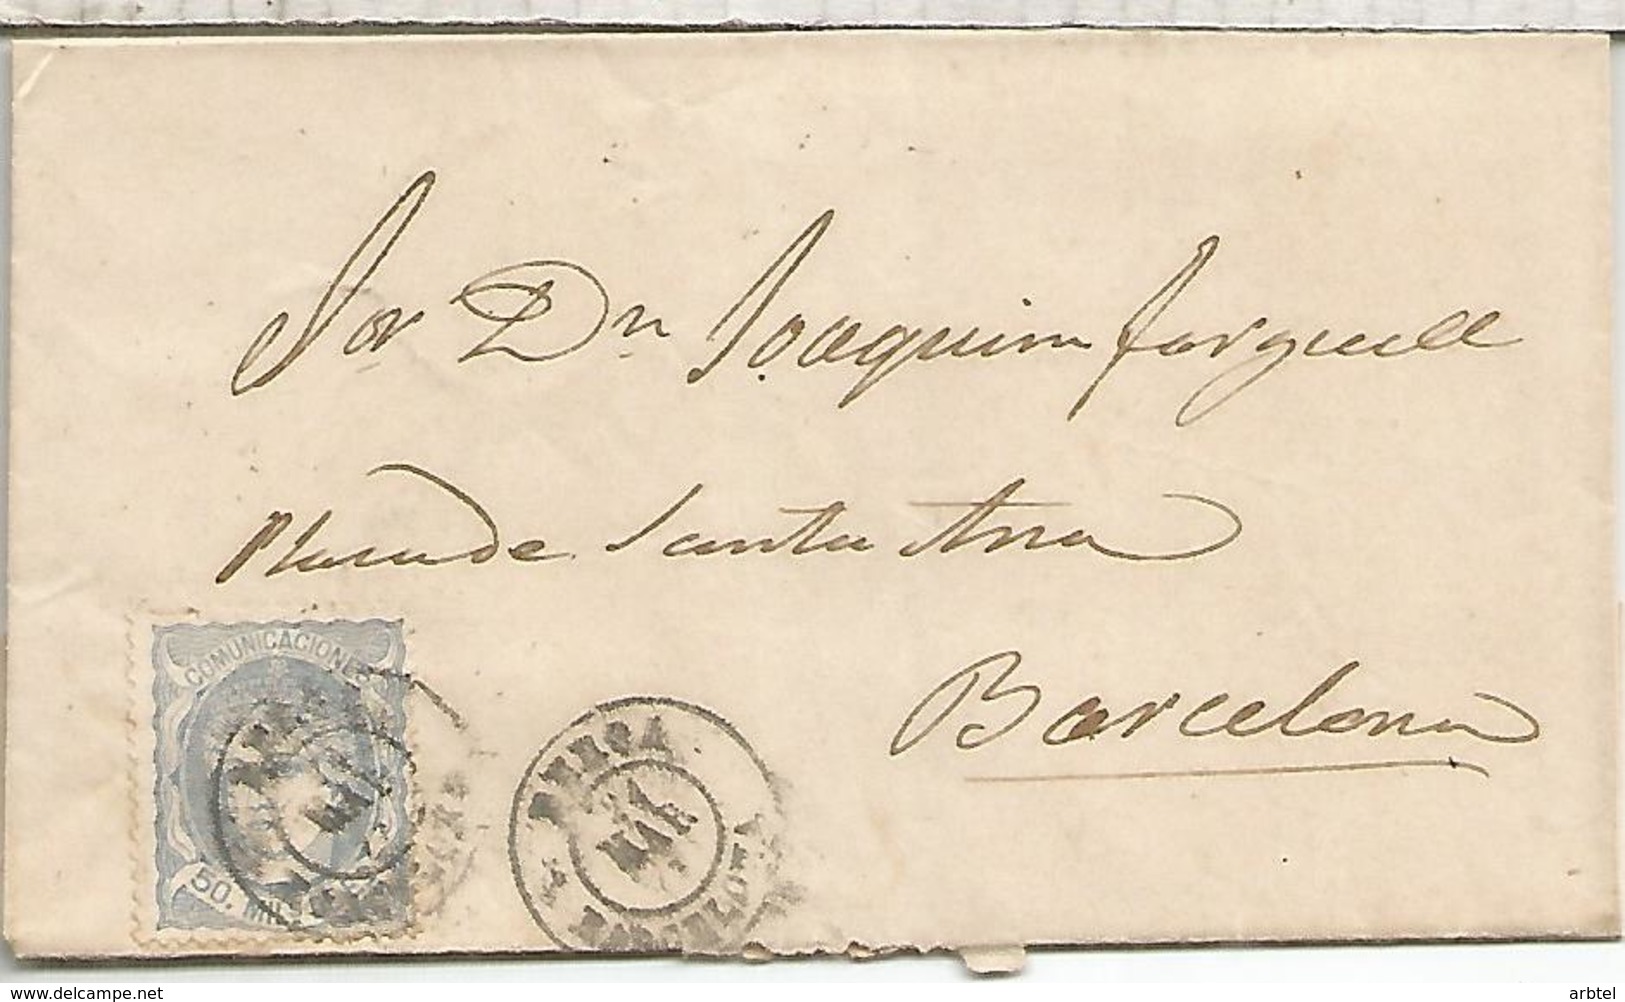 Sor Dn Joaquim Jorguell
Plasa de Santa Ana
Barcelona
COMUNICACIONES
50. MIL
BERGA
31
MAR
BARCELONA
www.delcampe.net
arbtel